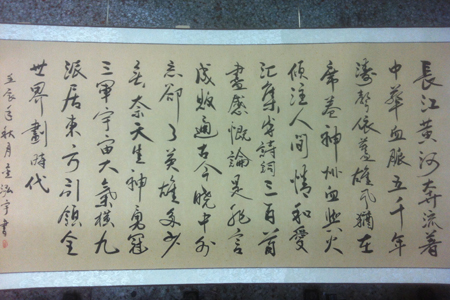 長江黄河奔流著
中華血脈五千年
聲依舊雄風猶在
席卷神州血與火
傾注人間情和愛
汇集詩詞三百首
盡感慨論是非言
成敗通古今曉中外
忘卻了英雄多少
無奈天生神勇冠
三軍宇宙大氣横九
派居東方引領全
世界劃時代
壬辰年秋月書